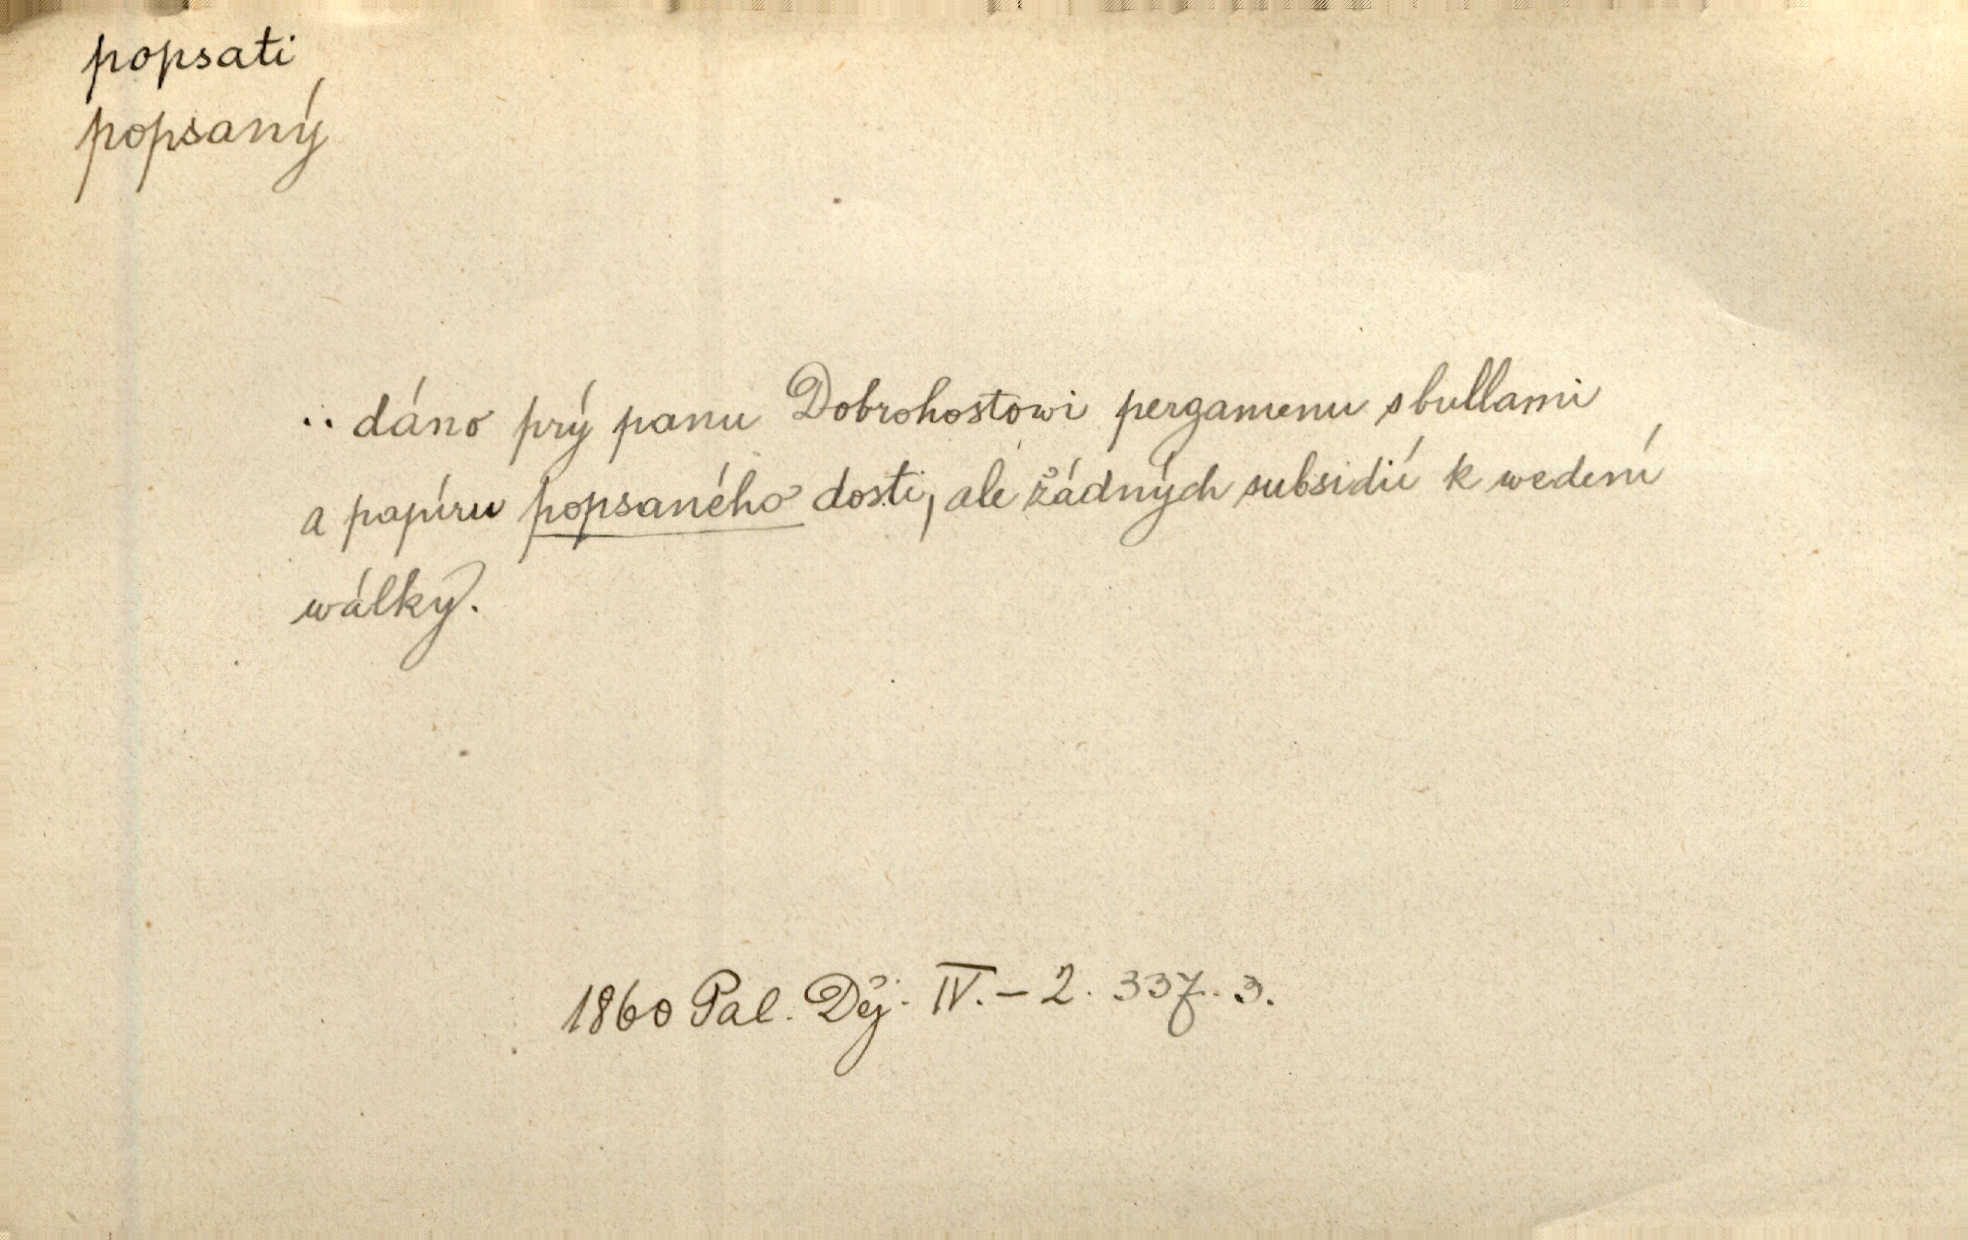 popsati
popsaný
.. dáno prý panu Dobrohostowi pergamenu s bullami
a papíru popsaného dosti, ale žádných subsidií k wedení
wálky.
1860 Pal. Děj. IV. – 2. 337. 3.